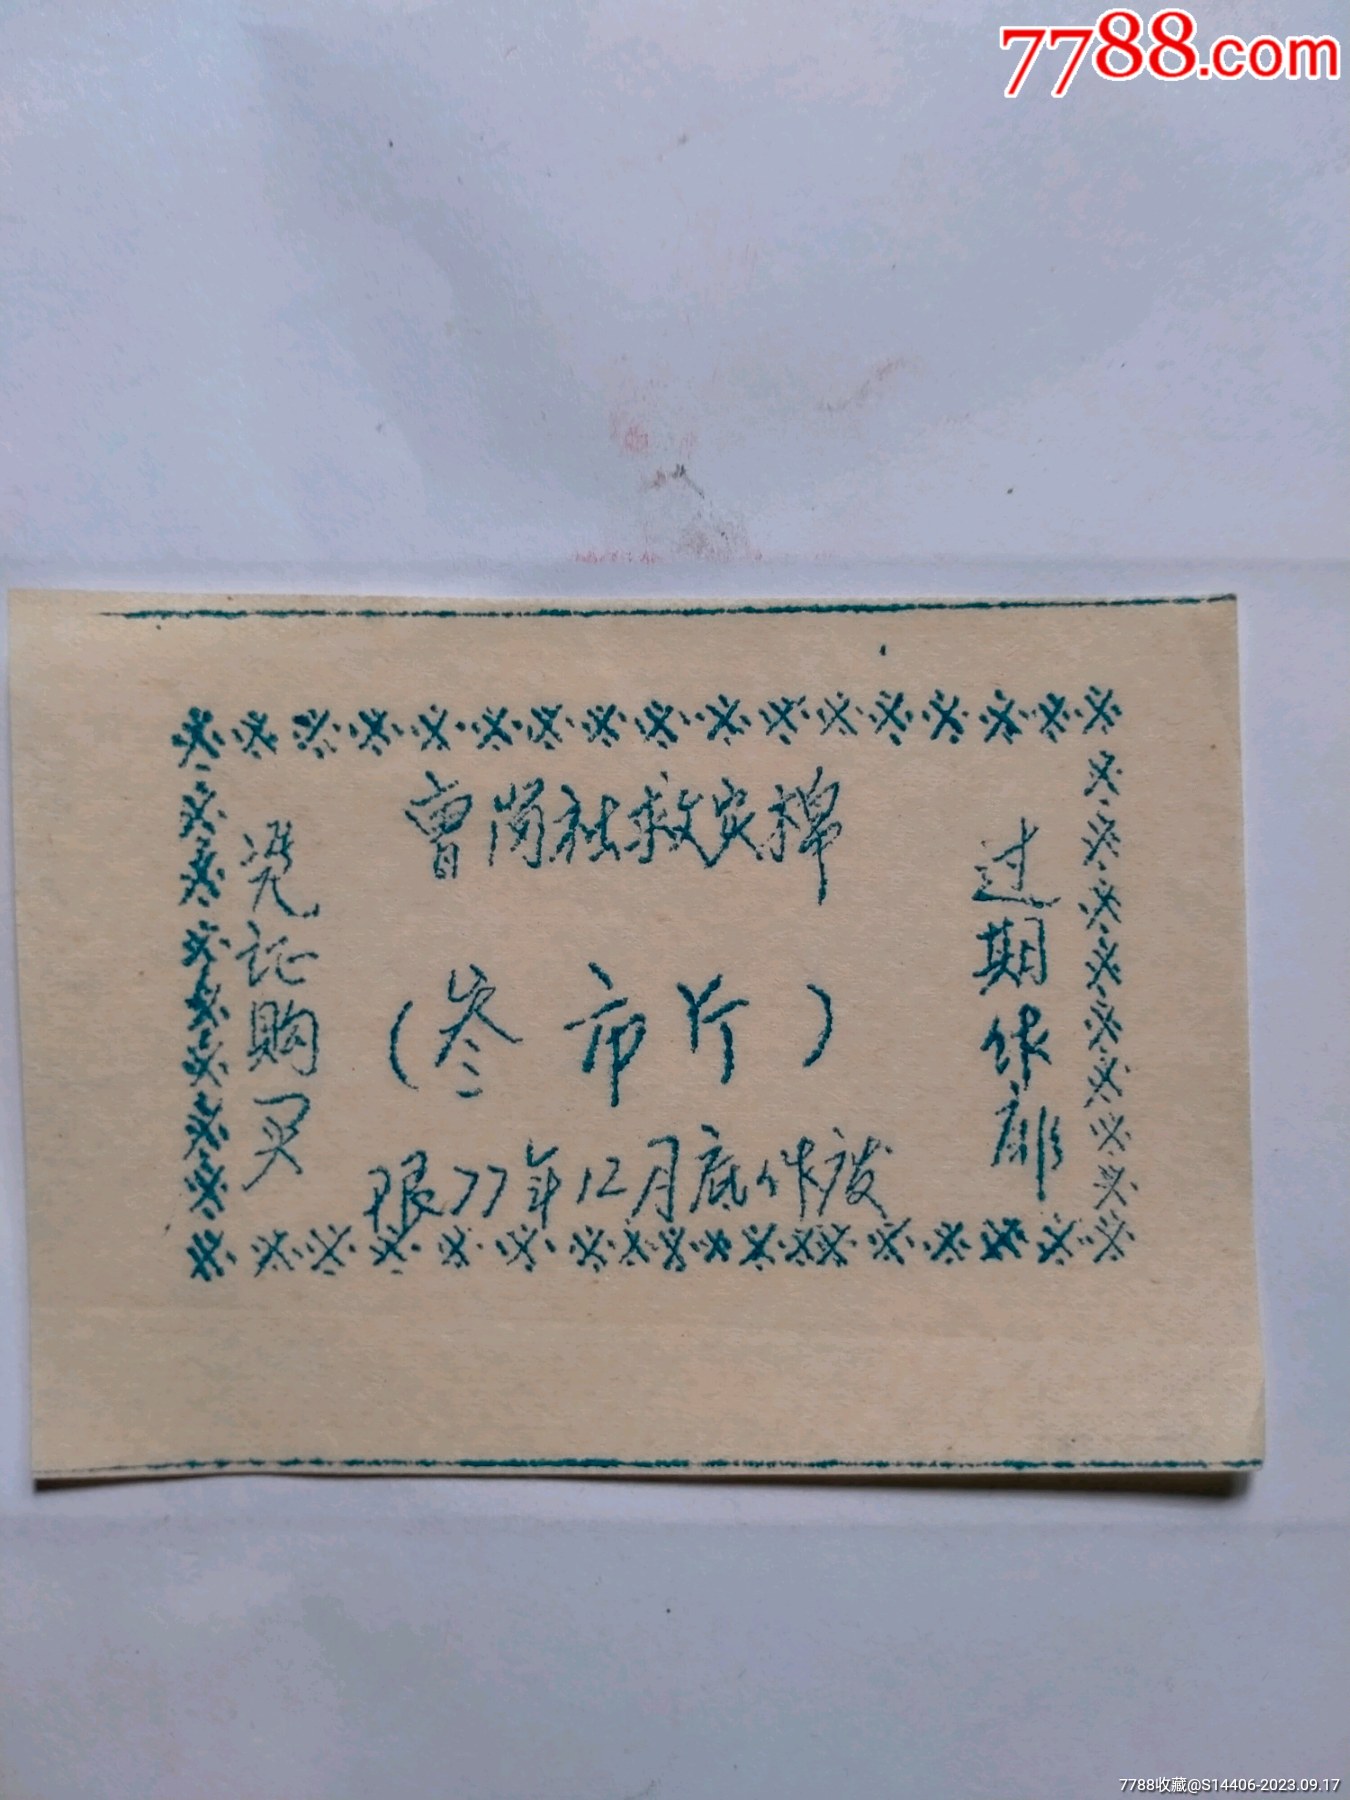 7788.com
曹岗社救灾棉
凭证购买
(叁市斤)
过期作废
限77年12月底作废
7788收藏@S14406-2023.09.17